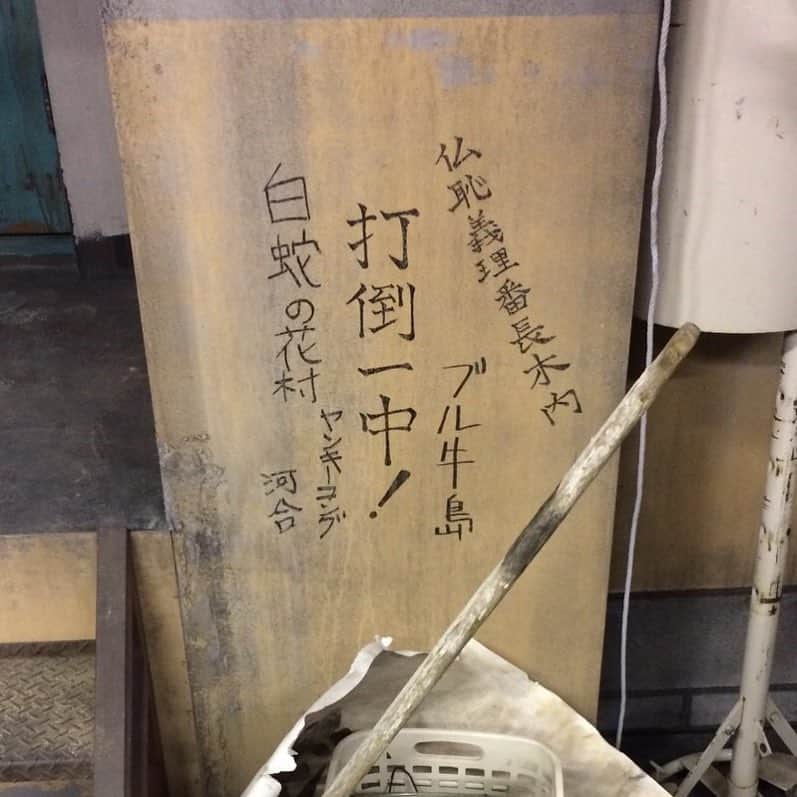 仏恥義理番長木内
ブル牛島
打倒一中!
ヤンキーコング
河合
白蛇の花村